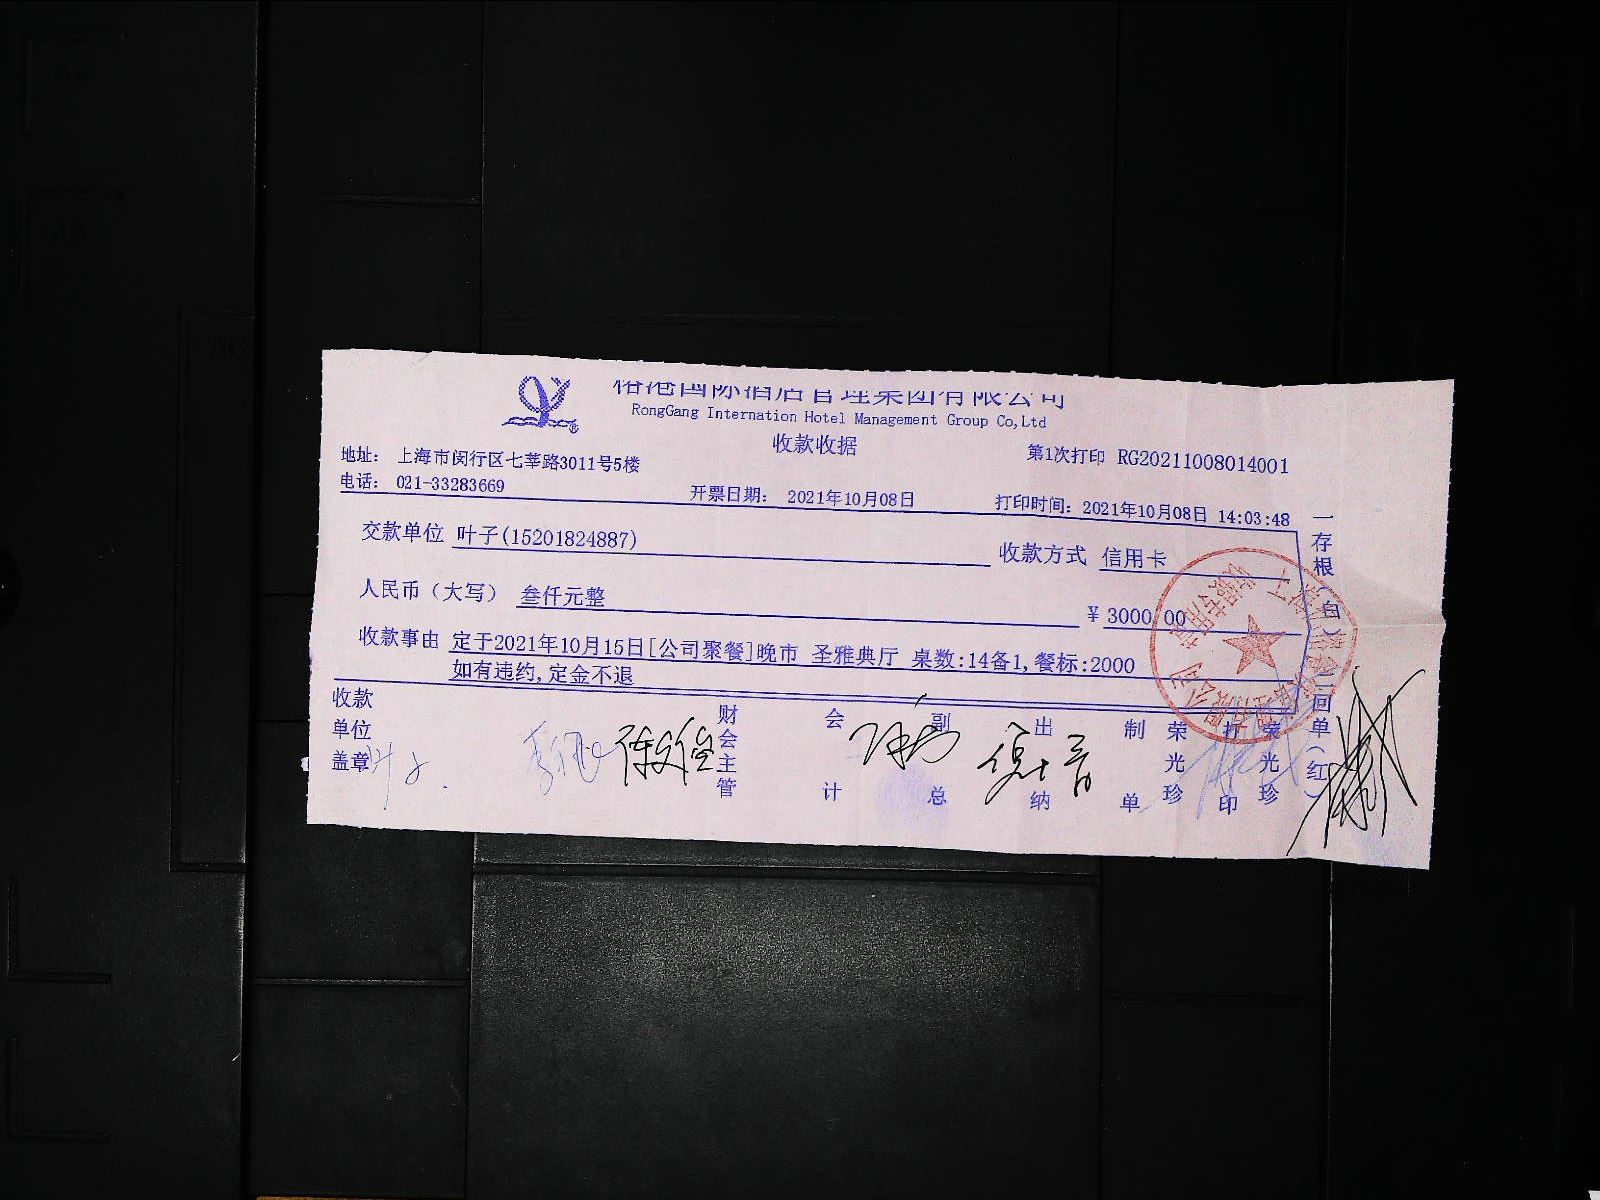 国际酒店管理集团有限公司
RongGang Internation Hotel Management Group Co,Ltd
收款收据
地址: 上海市闵行区七莘路3011号5楼
第1次打印 RG20211008014001
电话: 021-33283669
开票日期: 2021年10月08日
打印时间: 2021年10月08日 14:03:48
交款单位 叶子(15201824887)
收款方式 信用卡
人民币（大写） 叁仟元整
¥ 3000.00
收款事由 定于2021年10月15日[公司聚餐]晚市 圣雅典厅 桌数:14备1,餐标:2000
如有违约,定金不退
收款单位盖章
财会主管
会计
副总
出纳
制单
荣光珍
打印
荣光珍
一存根(白)
二回单(红)